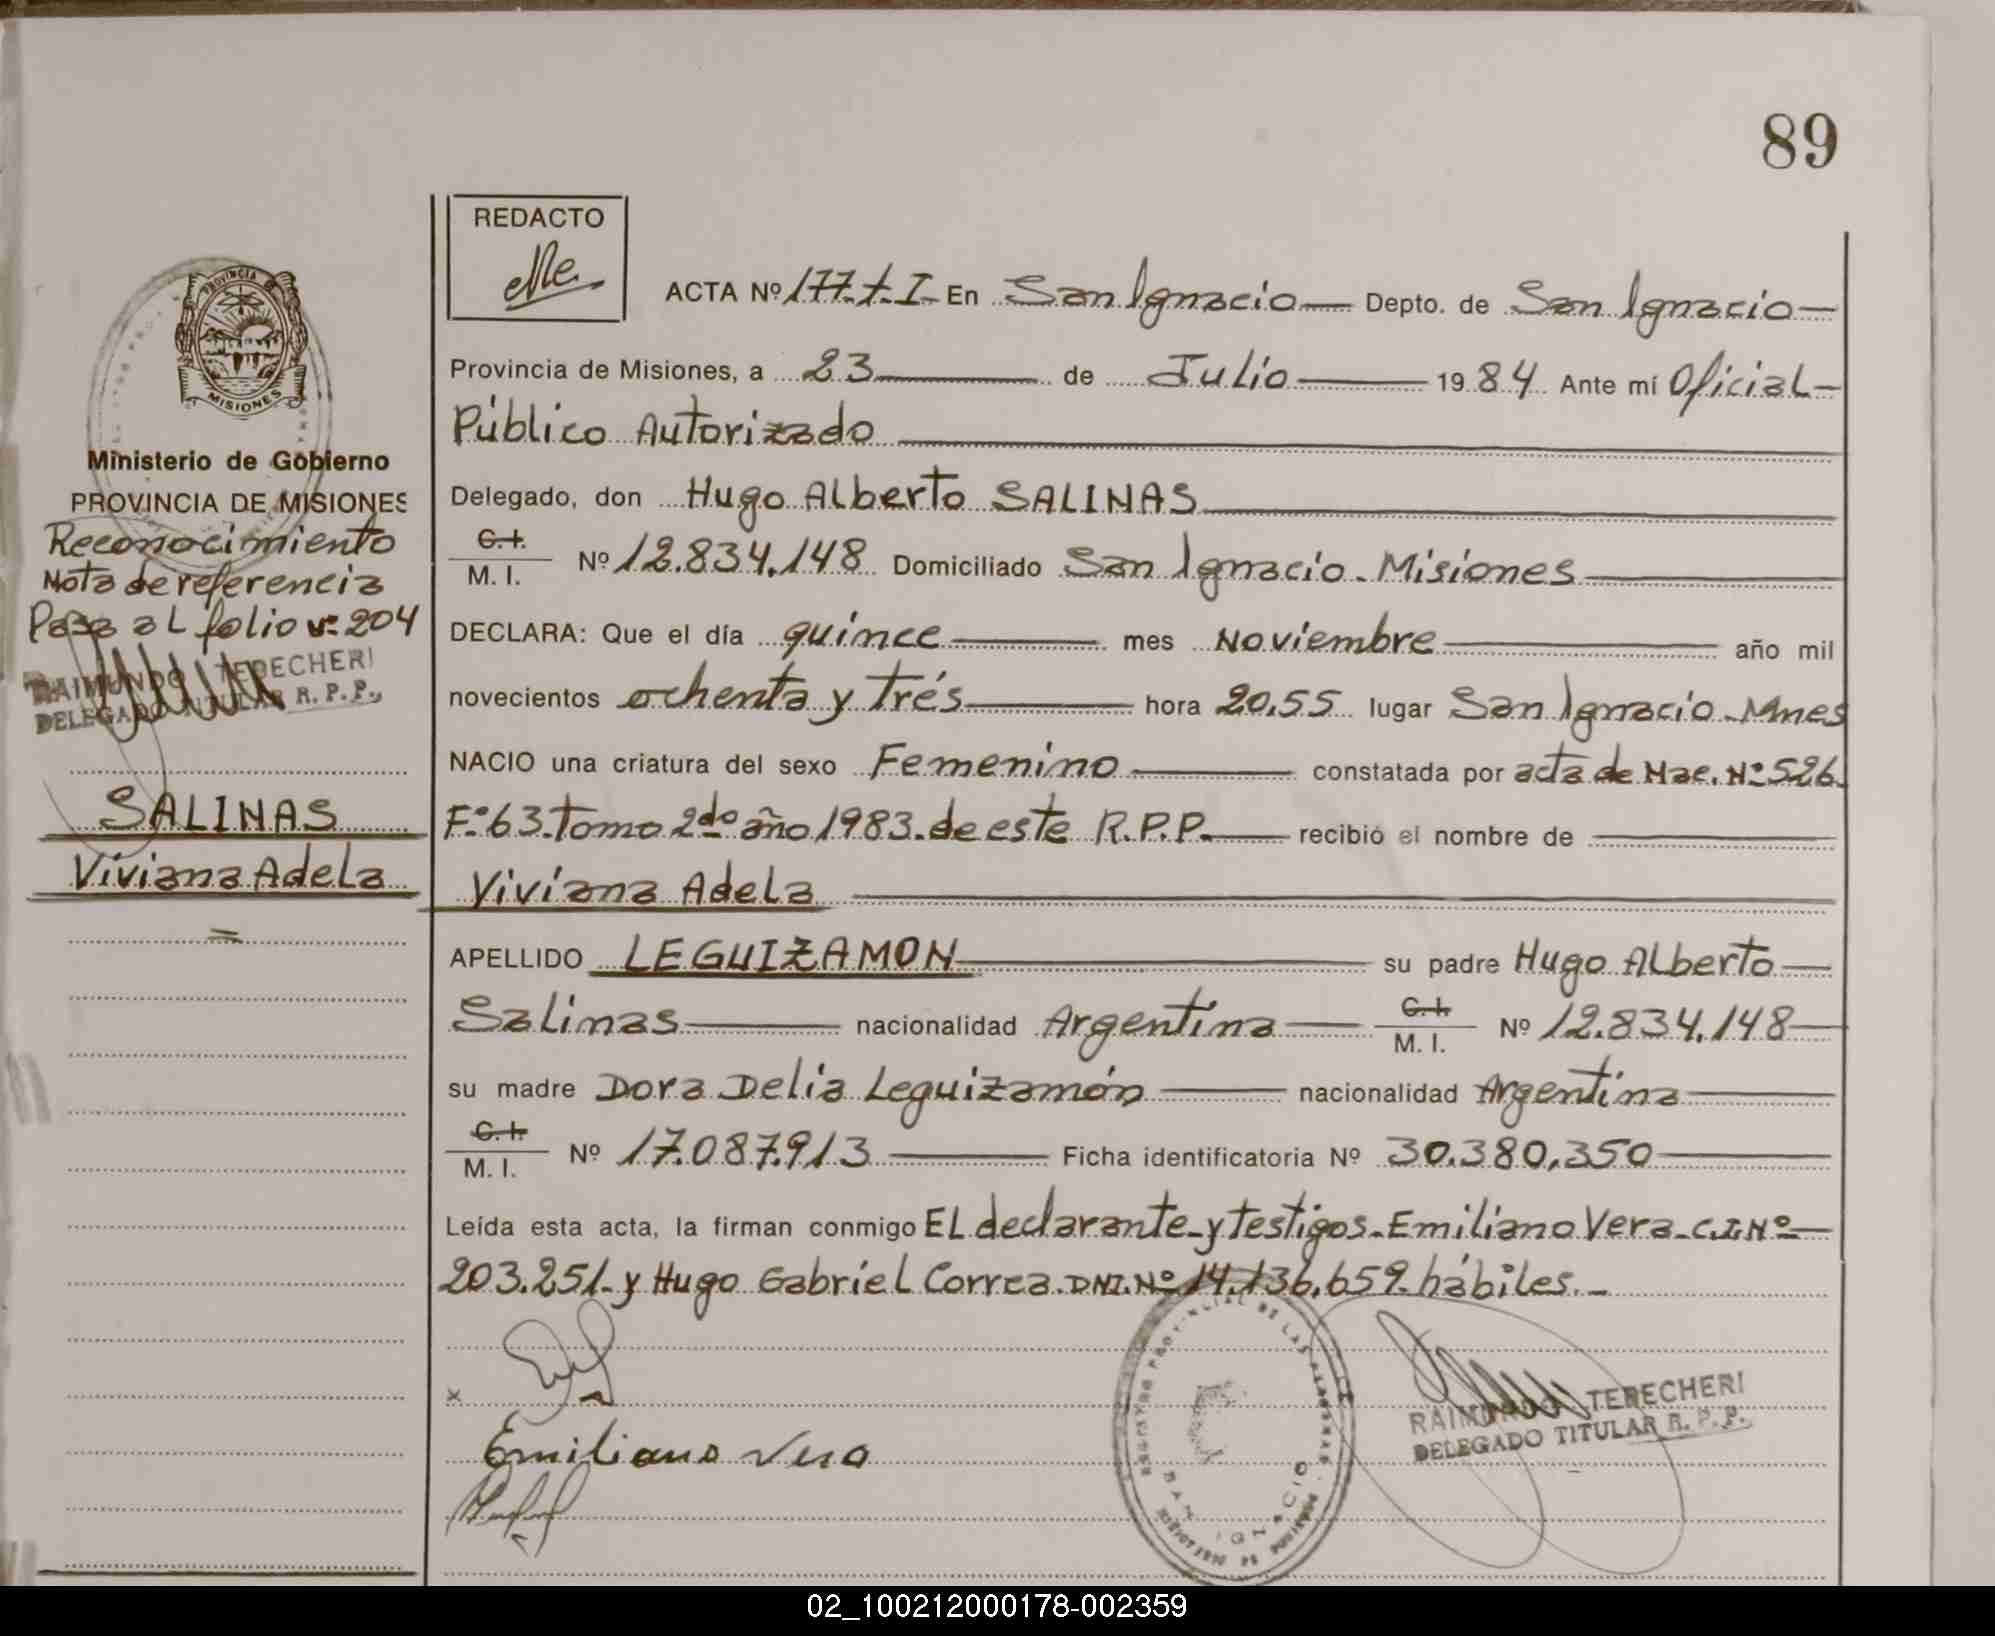 89
REDACTO
ACTA Nº 177.t.I. En San Ignacio Depto. de San Ignacio
Provincia de Misiones, a 23 de Julio 1984 Ante mí Oficial
Público Autorizado
Delegado, don Hugo Alberto SALINAS
C.I.
M. I. Nº 12.834.148 Domiciliado San Ignacio - Misiones
DECLARA: Que el día quince mes Noviembre año mil
novecientos ochenta y trés hora 20,55 lugar San Ignacio - Mnes
NACIO una criatura del sexo Femenino constatada por acta de Nac. Nº 526.
Fº 63. Tomo 2do año 1983. de este R.P.P. recibió el nombre de
Viviana Adela
APELLIDO LEGUIZAMON su padre Hugo Alberto
Salinas nacionalidad Argentina C.I. M. I. Nº 12.834.148
su madre Dora Delia Leguizamón nacionalidad Argentina
C.I.
M. I. Nº 17.087.913 Ficha identificatoria Nº 30.380,350
Leída esta acta, la firman conmigo EL declarante y testigos - Emiliano Vera - C.I. Nº
203.251 - y Hugo Gabriel Correa. DNI. Nº 14.136,659. hábiles. -
x
Emiliano Vera
RAIMUNDO TERECHERI
DELEGADO TITULAR R. P. P.
PROVINCIA DE
MISIONES
Ministerio de Gobierno
PROVINCIA DE MISIONES
Reconocimiento
Nota de referencia
Pasa al folio nº 204
RAIMUNDO TERECHERI
DELEGADO TITULAR R. P. P.
SALINAS
Viviana Adela
SAN IGNACIO
02_100212000178-002359